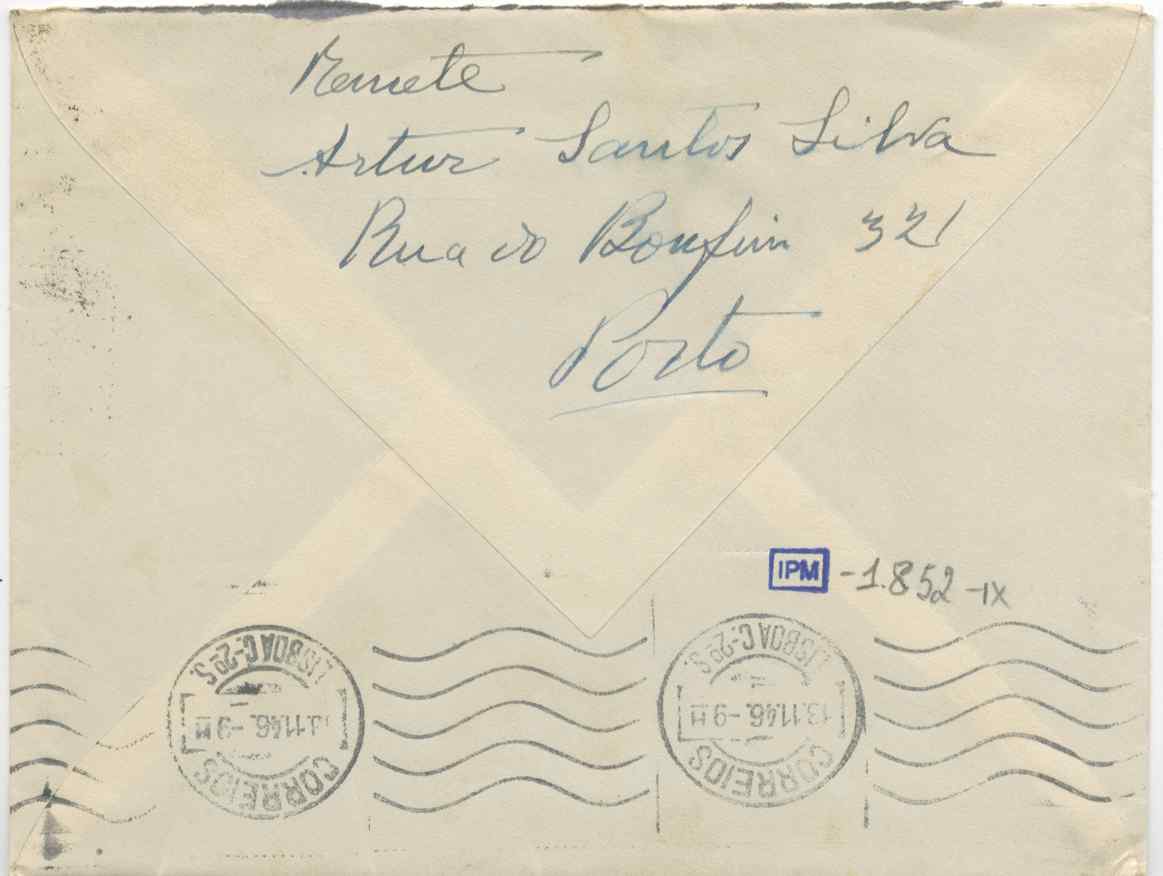 Remete
Artur Santos Silva
Rua do Bonfim 321
Porto
IPM -1.852-IX
LISBOA C.-2º S.
13.11.46.-9 H
CORREIOS
LISBOA C.-2º S.
13.11.46.-9 H
CORREIOS